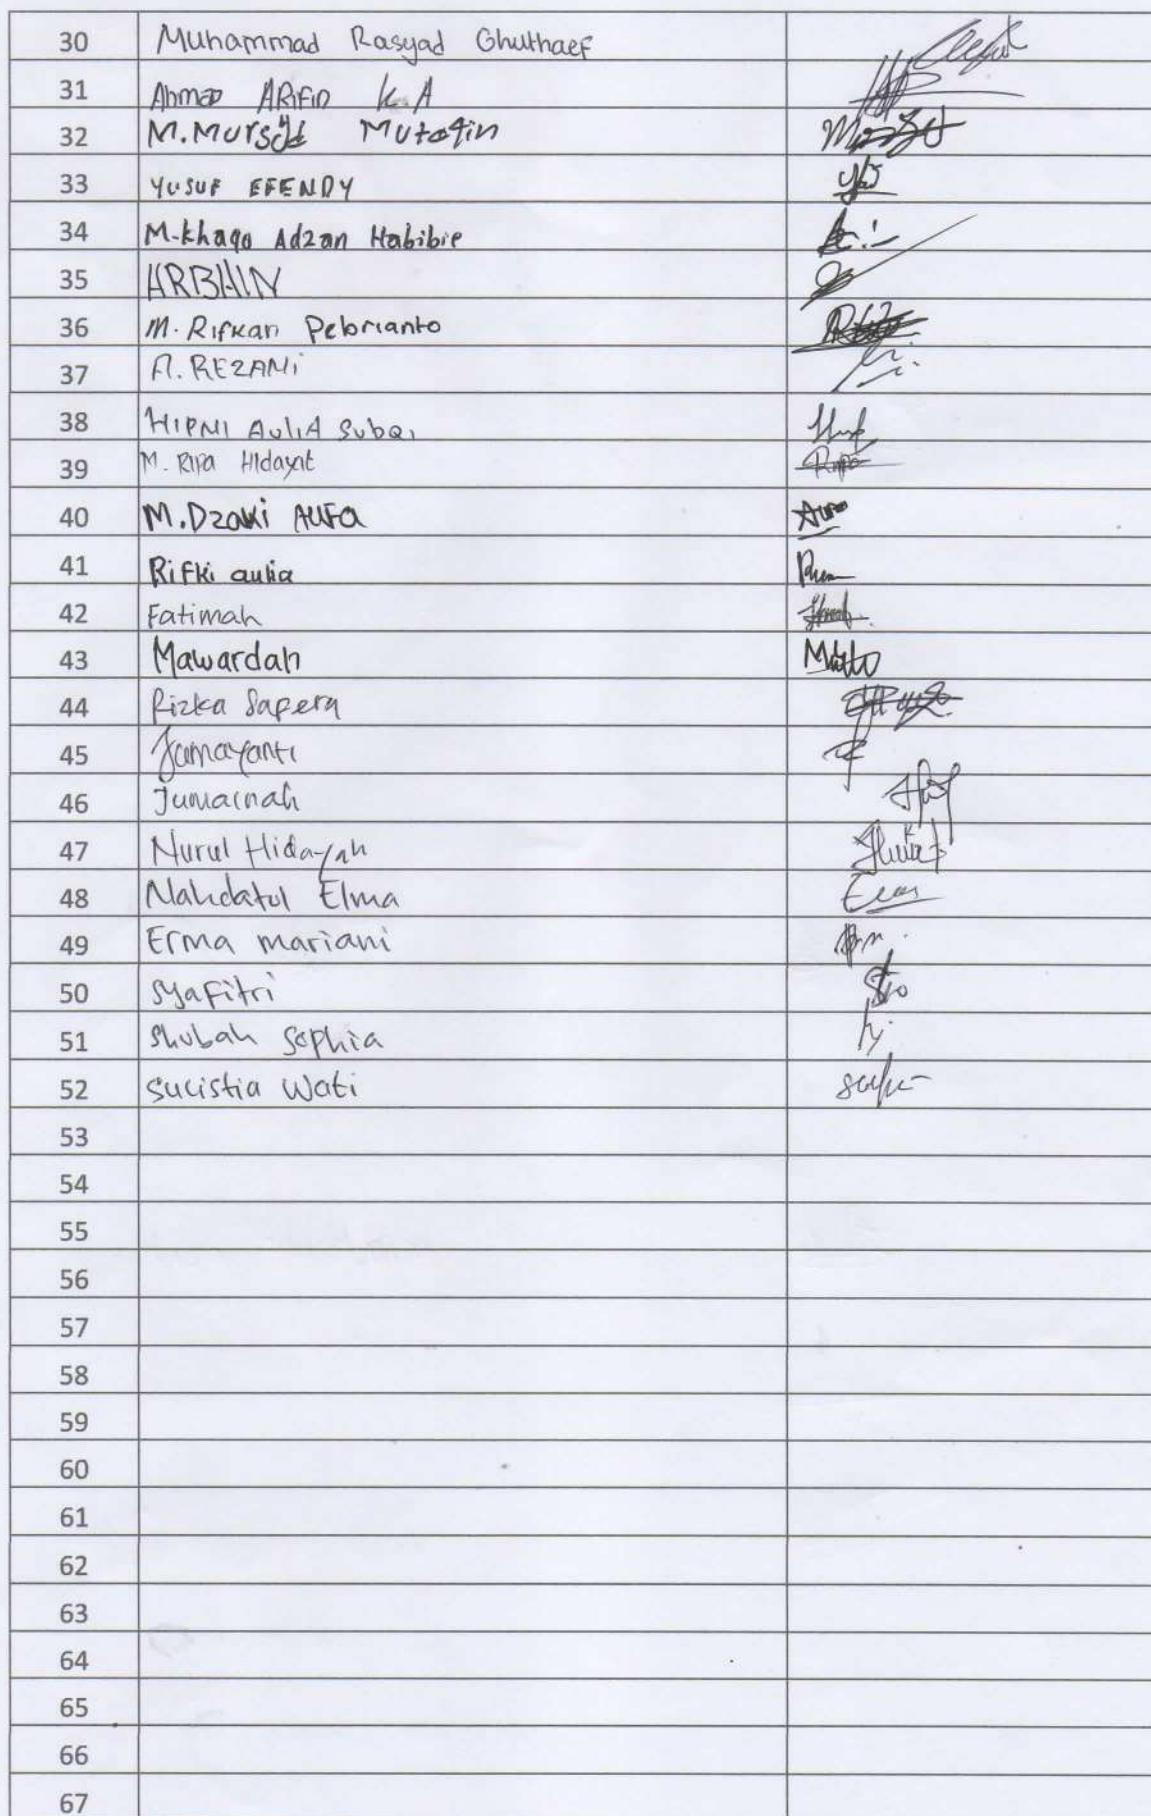 30 Muhammad Rasyad Ghuthaef
31 Ahmad ARiFiD K.A
32 M.Mursyid Mutaqin
33 YUSUF EFENDY
34 M-khaqo Adzan Habibie
35 ARBAIN
36 M. Rifkan Pebrianto
37 A. REZANi
38 HIPNI AuliA Subqi
39 M. Ripa Hidayat
40 M.Dzaki AUFA
41 RiFki aulia
42 Fatimah
43 Mawardah
44 Rizka Sapera
45 Jamayanti
46 Jumainah
47 Nurul Hidayah
48 Nahdatul Elma
49 Erma mariani
50 SyaFitri
51 Shubah Sophia
52 Sucistia Wati
53
54
55
56
57
58
59
60
61
62
63
64
65
66
67